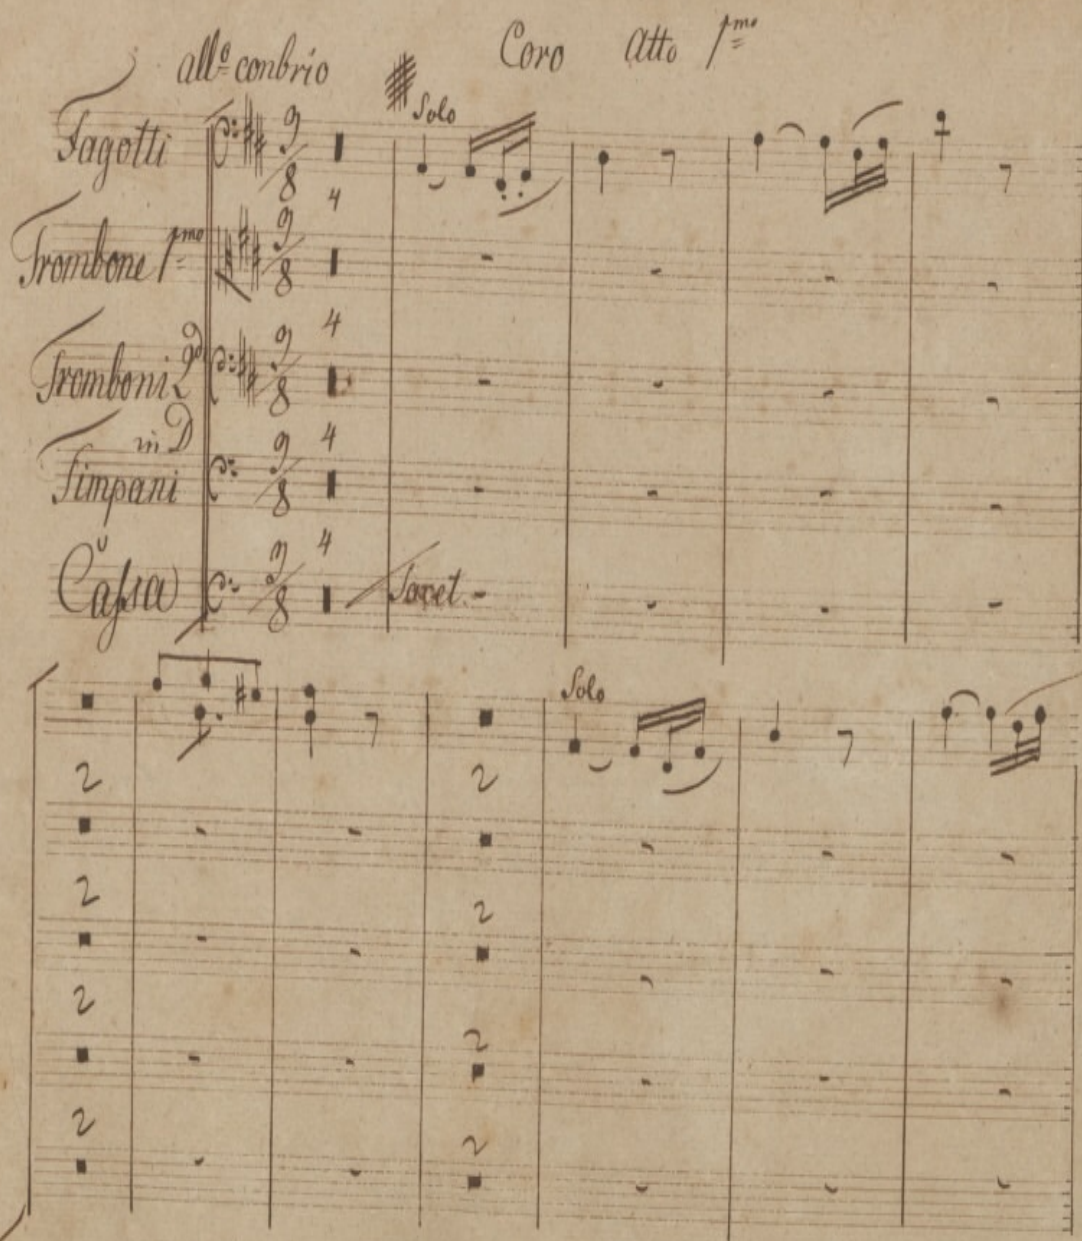 all.º con brio Coro Atto 1mo
Solo
Fagotti 9/8
4
Trombone 1mo 9/8
4
Tromboni 2di 9/8
4
in D
Timpani 9/8
4
Cassa 9/8 Tacet
Solo
2 2
2 2
2 2
2 2